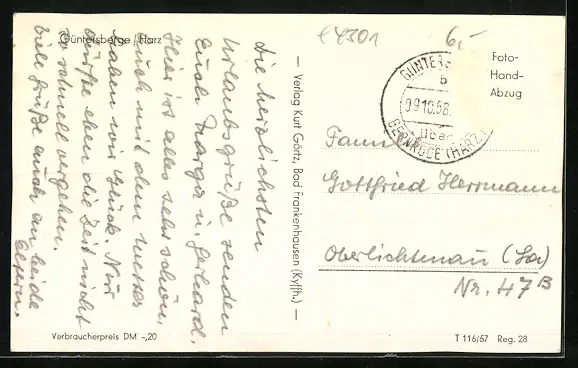 Güntersberge / Harz
die herzlichsten
Urlaubsgrüße senden
Euch Marga u. Gerhard.
Hier ist alles sehr schön,
auch mit dem Wetter
haben wir Glück. Nur
dürfte eben die Zeit nicht
so schnell vergehen.
Viele Grüße auch an beide
Eltern.
Verbraucherpreis DM -,20
— Verlag Kurt Görtz, Bad Frankenhausen (Kyffh.) —
E4301
6,-
Foto-
Hand-
Abzug
GÜNTERS
b
09.10.58.
über
GERNRODE (HARZ)
Fam.
Gottfried Herrmann
Oberlichtenau (Sa)
Nr. 47B
T 116/57 Reg. 28